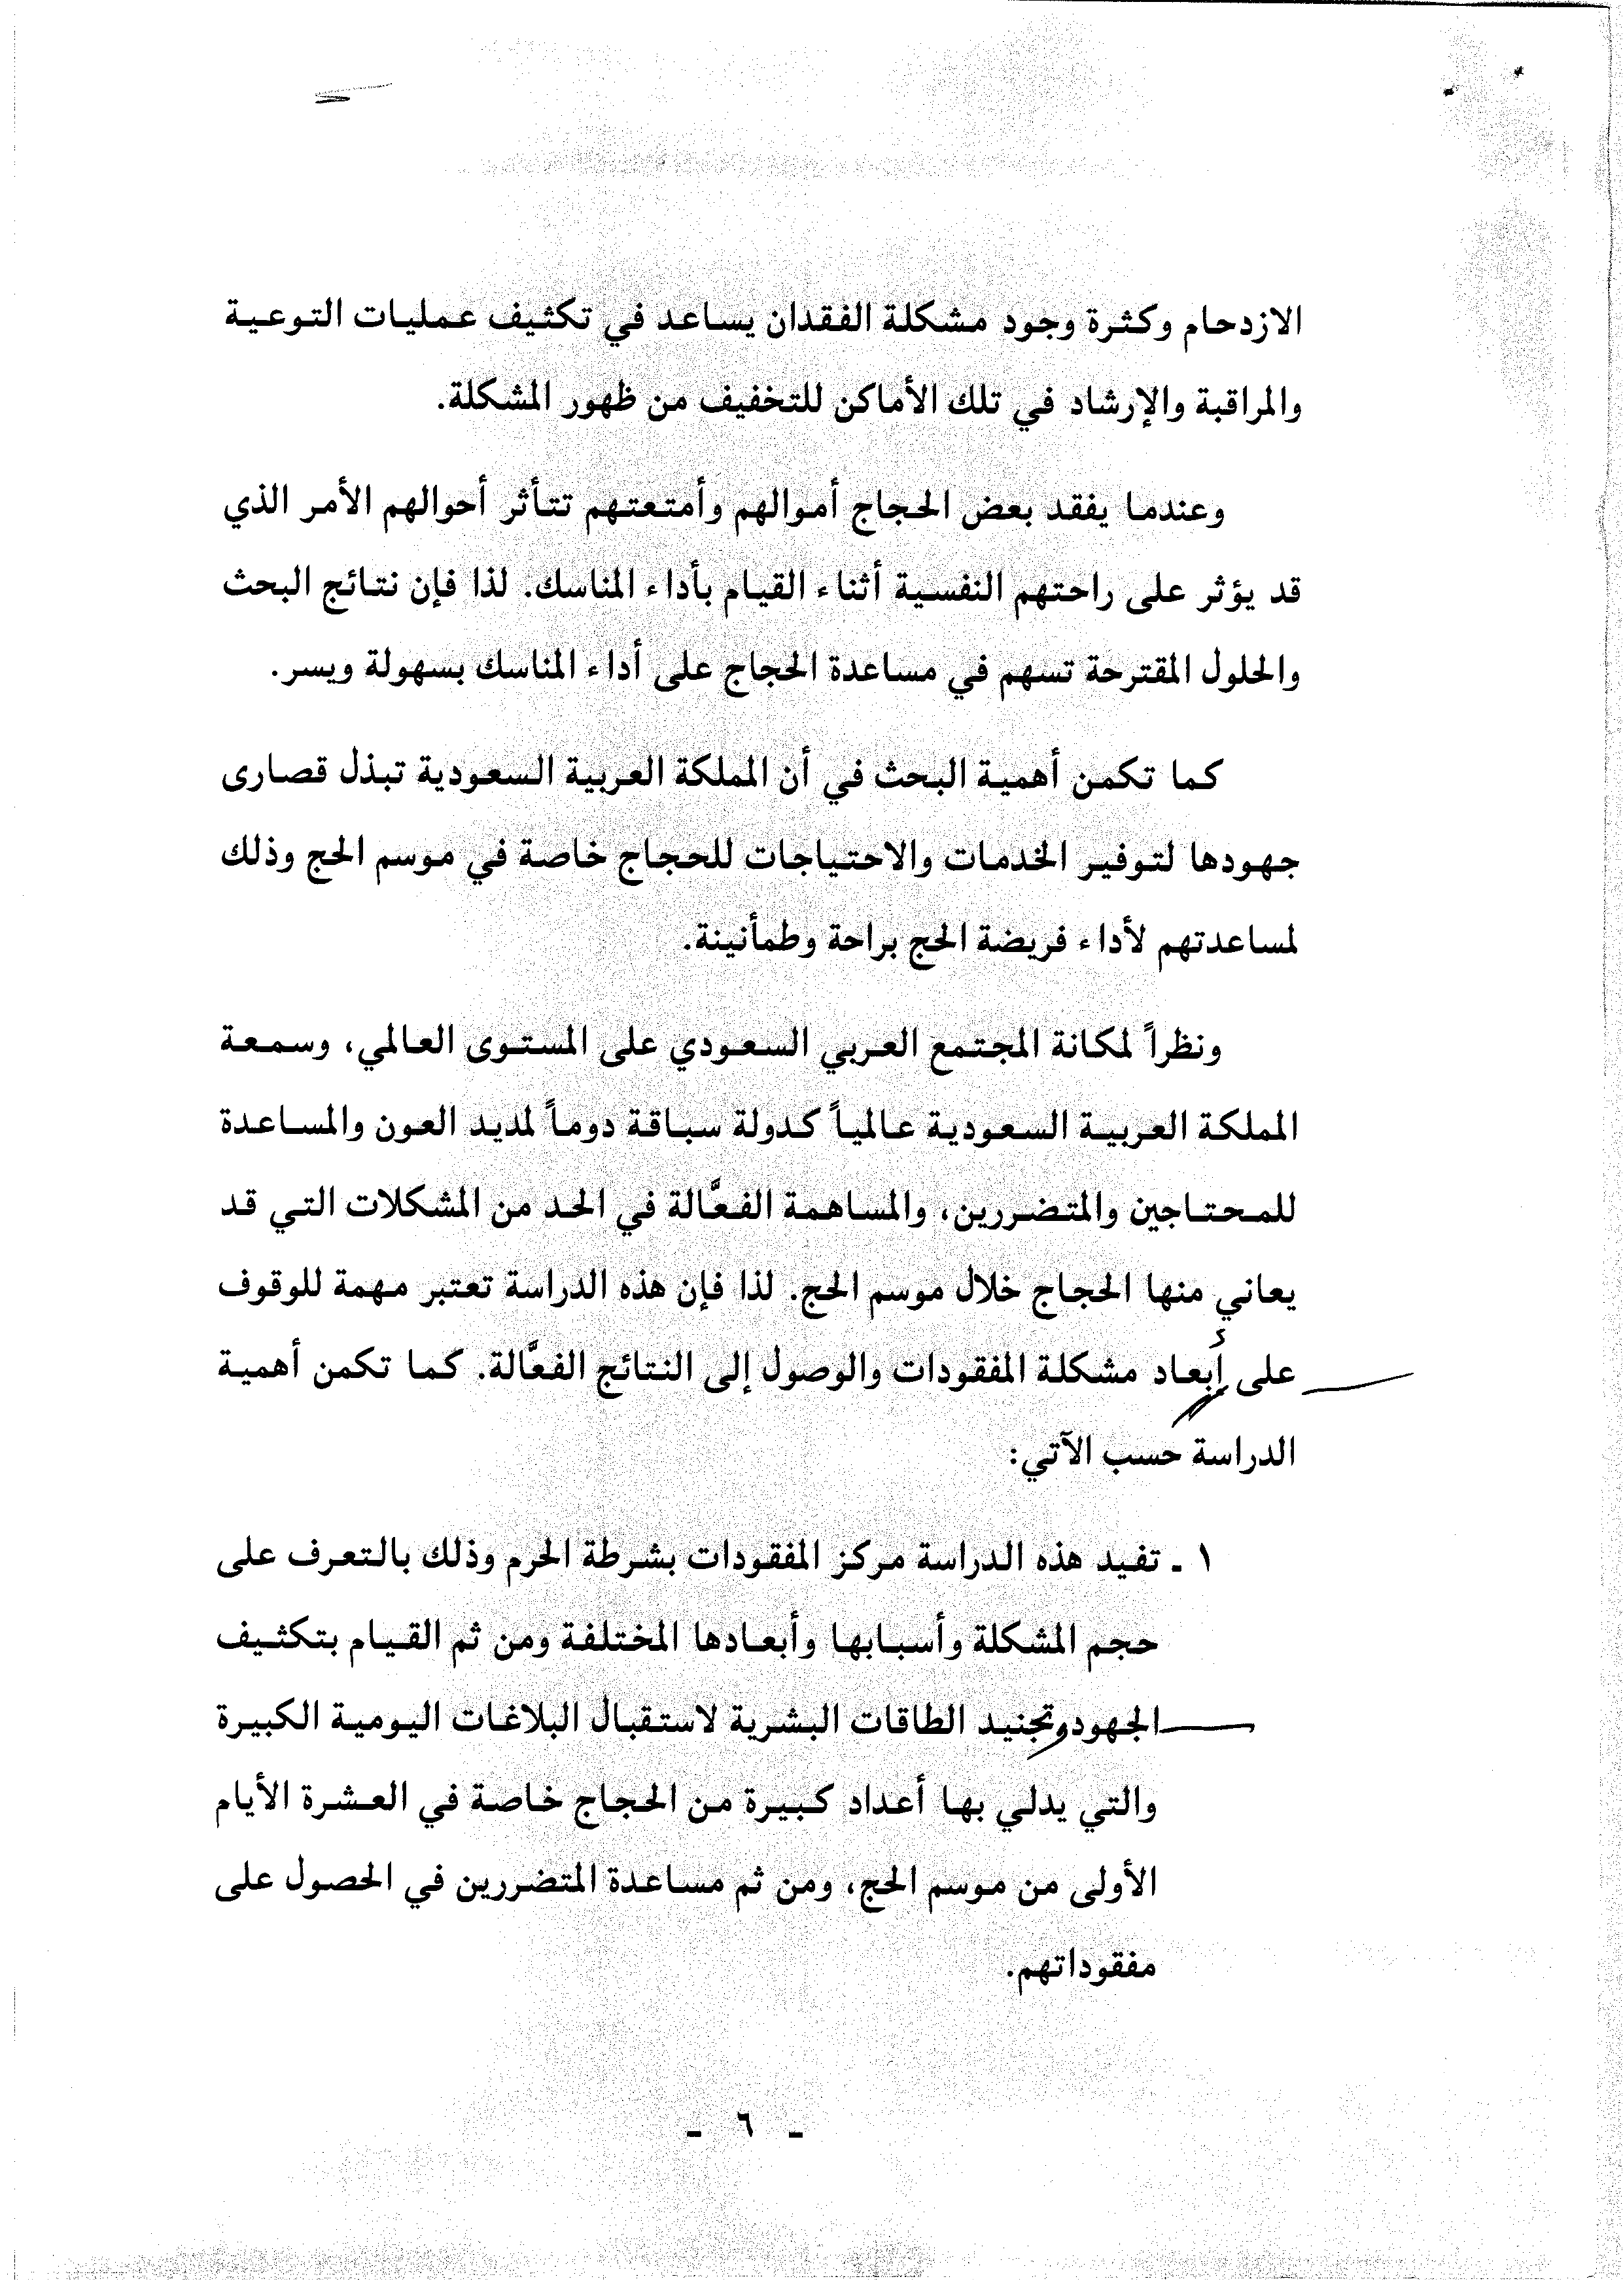 الازدحام وكثرة وجود مشكلة الفقدان يساعد في تكثيف عمليات التوعية
والمراقبة والإرشاد في تلك الأماكن للتخفيف من ظهور المشكلة.
وعندما يفقد بعض الحجاج أموالهم وأمتعتهم تتأثر أحوالهم الأمر الذي
قد يؤثر على راحتهم النفسية أثناء القيام بأداء المناسك. لذا فإن نتائج البحث
والحلول المقترحة تسهم في مساعدة الحجاج على أداء المناسك بسهولة ويسر.
كما تكمن أهمية البحث في أن المملكة العربية السعودية تبذل قصارى
جهودها لتوفير الخدمات والاحتياجات للحجاج خاصة في موسم الحج وذلك
لمساعدتهم لأداء فريضة الحج براحة وطمأنينة.
ونظراً لمكانة المجتمع العربي السعودي على المستوى العالمي، وسمعة
المملكة العربية السعودية عالمياً كدولة سباقة دوماً لمديد العون والمساعدة
للمحتاجين والمتضررين، والمساهمة الفعَّالة في الحد من المشكلات التي قد
يعاني منها الحجاج خلال موسم الحج. لذا فإن هذه الدراسة تعتبر مهمة للوقوف
على أبعاد مشكلة المفقودات والوصول إلى النتائج الفعَّالة. كما تكمن أهمية
الدراسة حسب الآتي:
١ ـ تفيد هذه الدراسة مركز المفقودات بشرطة الحرم وذلك بالتعرف على
حجم المشكلة وأسبابها وأبعادها المختلفة ومن ثم القيام بتكثيف
الجهودوتجنيد الطاقات البشرية لاستقبال البلاغات اليومية الكبيرة
والتي يدلي بها أعداد كبيرة من الحجاج خاصة في العشرة الأيام
الأولى من موسم الحج، ومن ثم مساعدة المتضررين في الحصول على
مفقوداتهم.
ـ ٦ ـ